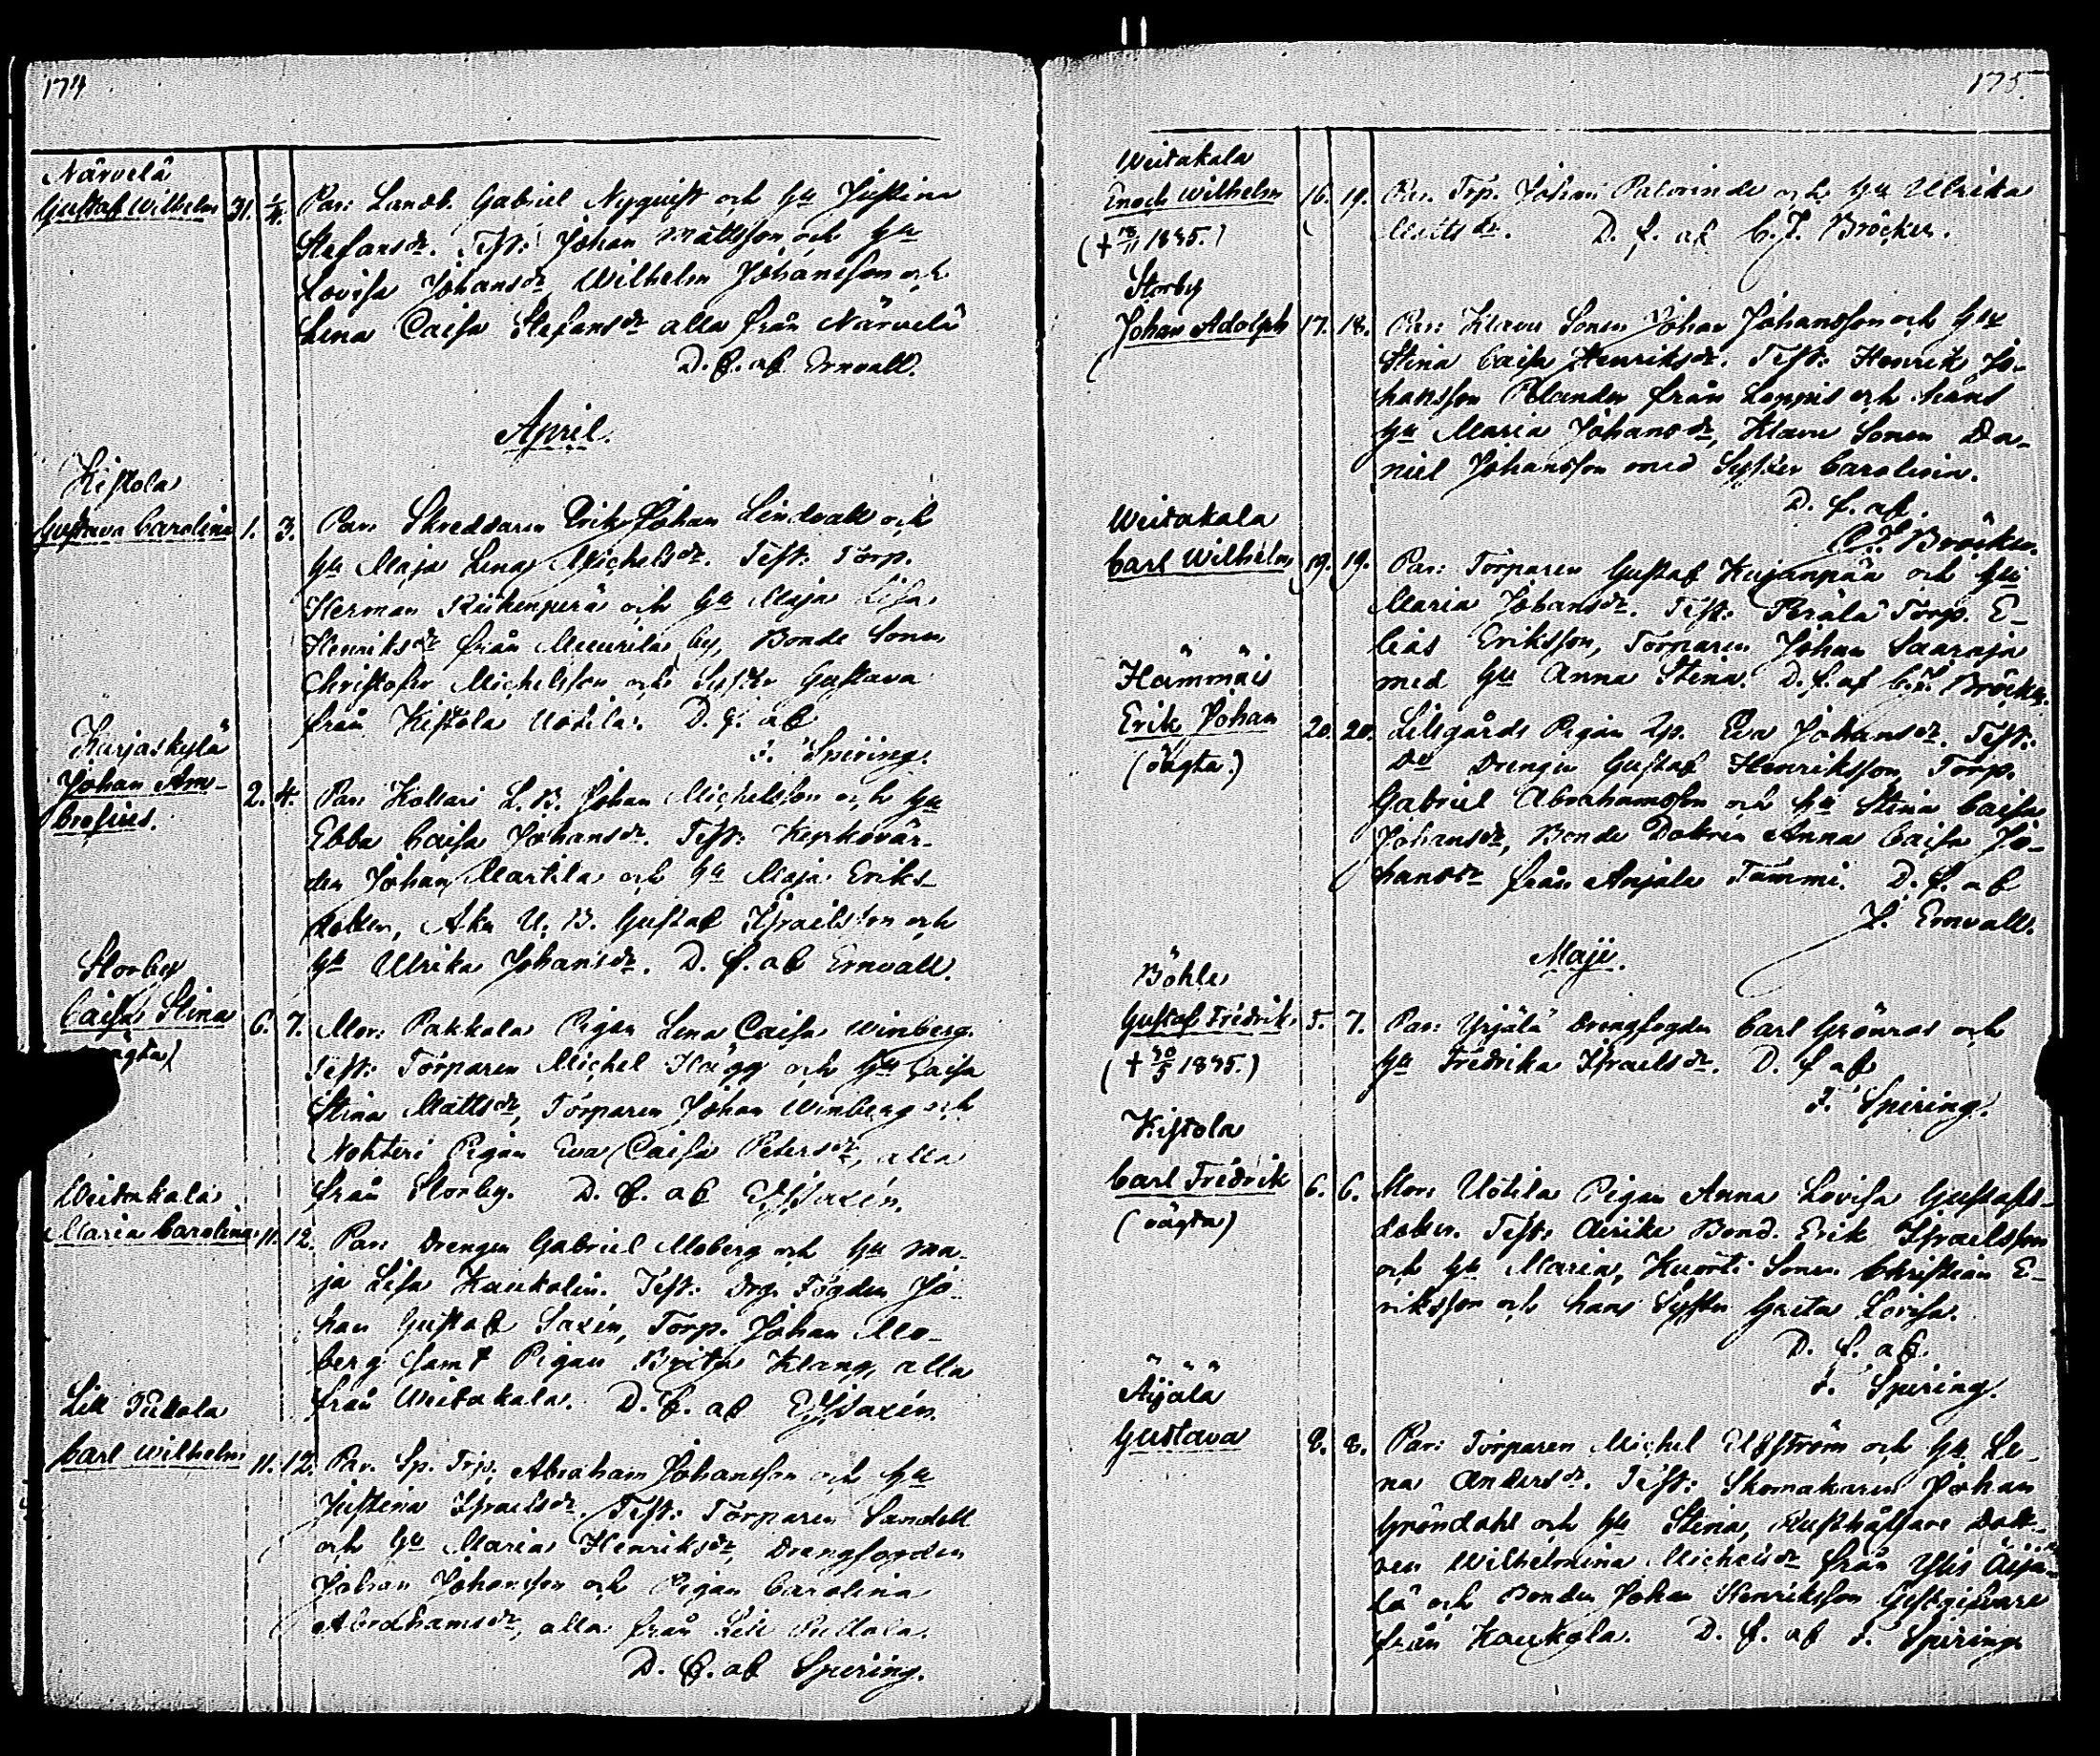 174
Närvelä
Gustaf Wilhelm 31. 1/4. Par: Landb. Gabriel Nyquist och Hu Justina
Stefansdr. Test: Johan Mattsson och Hu
Lovisa Johansdr, Wilhelm Johansson och
Lena Caisa Stefansdr alla från Närvelä
D. f. af Ernvall.
April.
Kistola
Gustava Carolina 1. 3. Par: Skreddaren Erik Johan Lindvall och
Hu Maja Lena Michelsdr. Test: Torp.
Herman och Hu Maja Lisa
Henriksdr från Muurila by, Bonde Sonen
Christofer Michelsson och Syster Gustava
från Kistola Uotila. D. f. af
F. Spiring.
Karjaskylä
Johan Am-
brosius. 2. 4. Par: Kollari L. B. Johan Michelsson och Hu
Ebba Caisa Johansdr. Test: Kyrkovär-
den Johan Martila och Hu Maja Eriks-
dotter, Aka U. B. Gustaf Israelsson och
Hu Ulrika Johansdr. D. f. af Ernvall.
Storby
Caisa Stina 6. 7. Mor: Pakkala Pigan Lena Caisa Winberg.
Test: Torparen Michel Hägg och Hu Caisa
Stina Mattsdr, Torparen Johan Winberg och
Nohteri Pigan Eva Caisa Petersdr, alla
från Storby. D. f. af Saxén.
Weitakala
Maria Carolina 11. 12. Par: Drengen Gabriel Moberg och Hu Ma-
ja Lisa Kaukolin. Test: Drg. Fogden Jo-
han Gustaf Saxén, Torp. Johan Mo-
berg samt Pigan Brita Klang, alla
från Weitakala. D. f. af Saxén.
Lill Pullola
Carl Wilhelm 11. 12. Par. Sp. Trp. Abraham Johansson och Hu
Justina Israelsdr. Test: Torparen Sandell
och Hu Maria Henriksdr, Drengfogden
Johan Johansson och Pigan Carolina
Abrahamsdr, alla från Lill Pullola.
D. f. af Spiring.
175.
Weitakala
Enoch Wilhelm 16. 19. Par. Trp. Johan Palorinde och Hu Ulrika
(† 18/11 1845.) Mattsdr. D. f. af C. J. Bröcker.
Storby
Johan Adolph 17. 18. Par: Klavu Sonen Johan Johansson och Hu
Stina Caisa Henriksdr. Test: Henrik Jo-
hansson Olander från Lempis och hans
Hu Maria Johansdr, Klavu Sonen Da-
niel Johansson med Syster Carolina.
D. f. af
C. J. Bröcker.
Weitakala
Carl Wilhelm 19. 19. Par: Torparen Gustaf Kujanpää och Hu
Maria Johansdr. Test: Perälä Torp. E-
lias Eriksson, Torparen Johan Saaraja
med Hu Anna Stina. D. f. af C. J. Bröcker.
Hämmäis
Erik Johan 20. 20. Lillgårds Pigan Eva Johansdr. Test:
(oägta.) Do Drengen Gustaf Henriksson, Torp.
Gabriel Abrahamsson och Hu Stina Caisa
Johansdr, Bonde Dottren Anna Caisa Jo-
hansdr från Anjala Tammi. D. f. af
F. Ernvall.
Maji.
Böhle
Gustaf Fredrik 5. 7. Par: Yrjälä Drengfogden Carl Grönroos och
(† 30/5 1845.) Hu Fredrika Israelsdr. D. f. af
F. Spiring.
Kistola
Carl Fredrik 6. 6. Mor: Uotila Pigan Anna Lovisa Gustafs-
(oägta) dotter. Test: Bond. Erik Israelsson
och Hu Maria, Kuorti Sonen Christian E-
riksson och hans Syster Greta Lovisa.
D. f. af
F. Spiring.
Äijälä
Gustava 8. 8. Par: Torparen Michel Ulfström och Hu Le-
na Andersdr. Test: Skomakaren Johan
Gröndahl och Hu Stina, Rusthållare Dott-
ren Wilhelmina Michelsdr från Ylis Äijä-
lä och Bonden Johan Henriksson Gestgifvare
från Kaukola. D. f. af F. Spiring